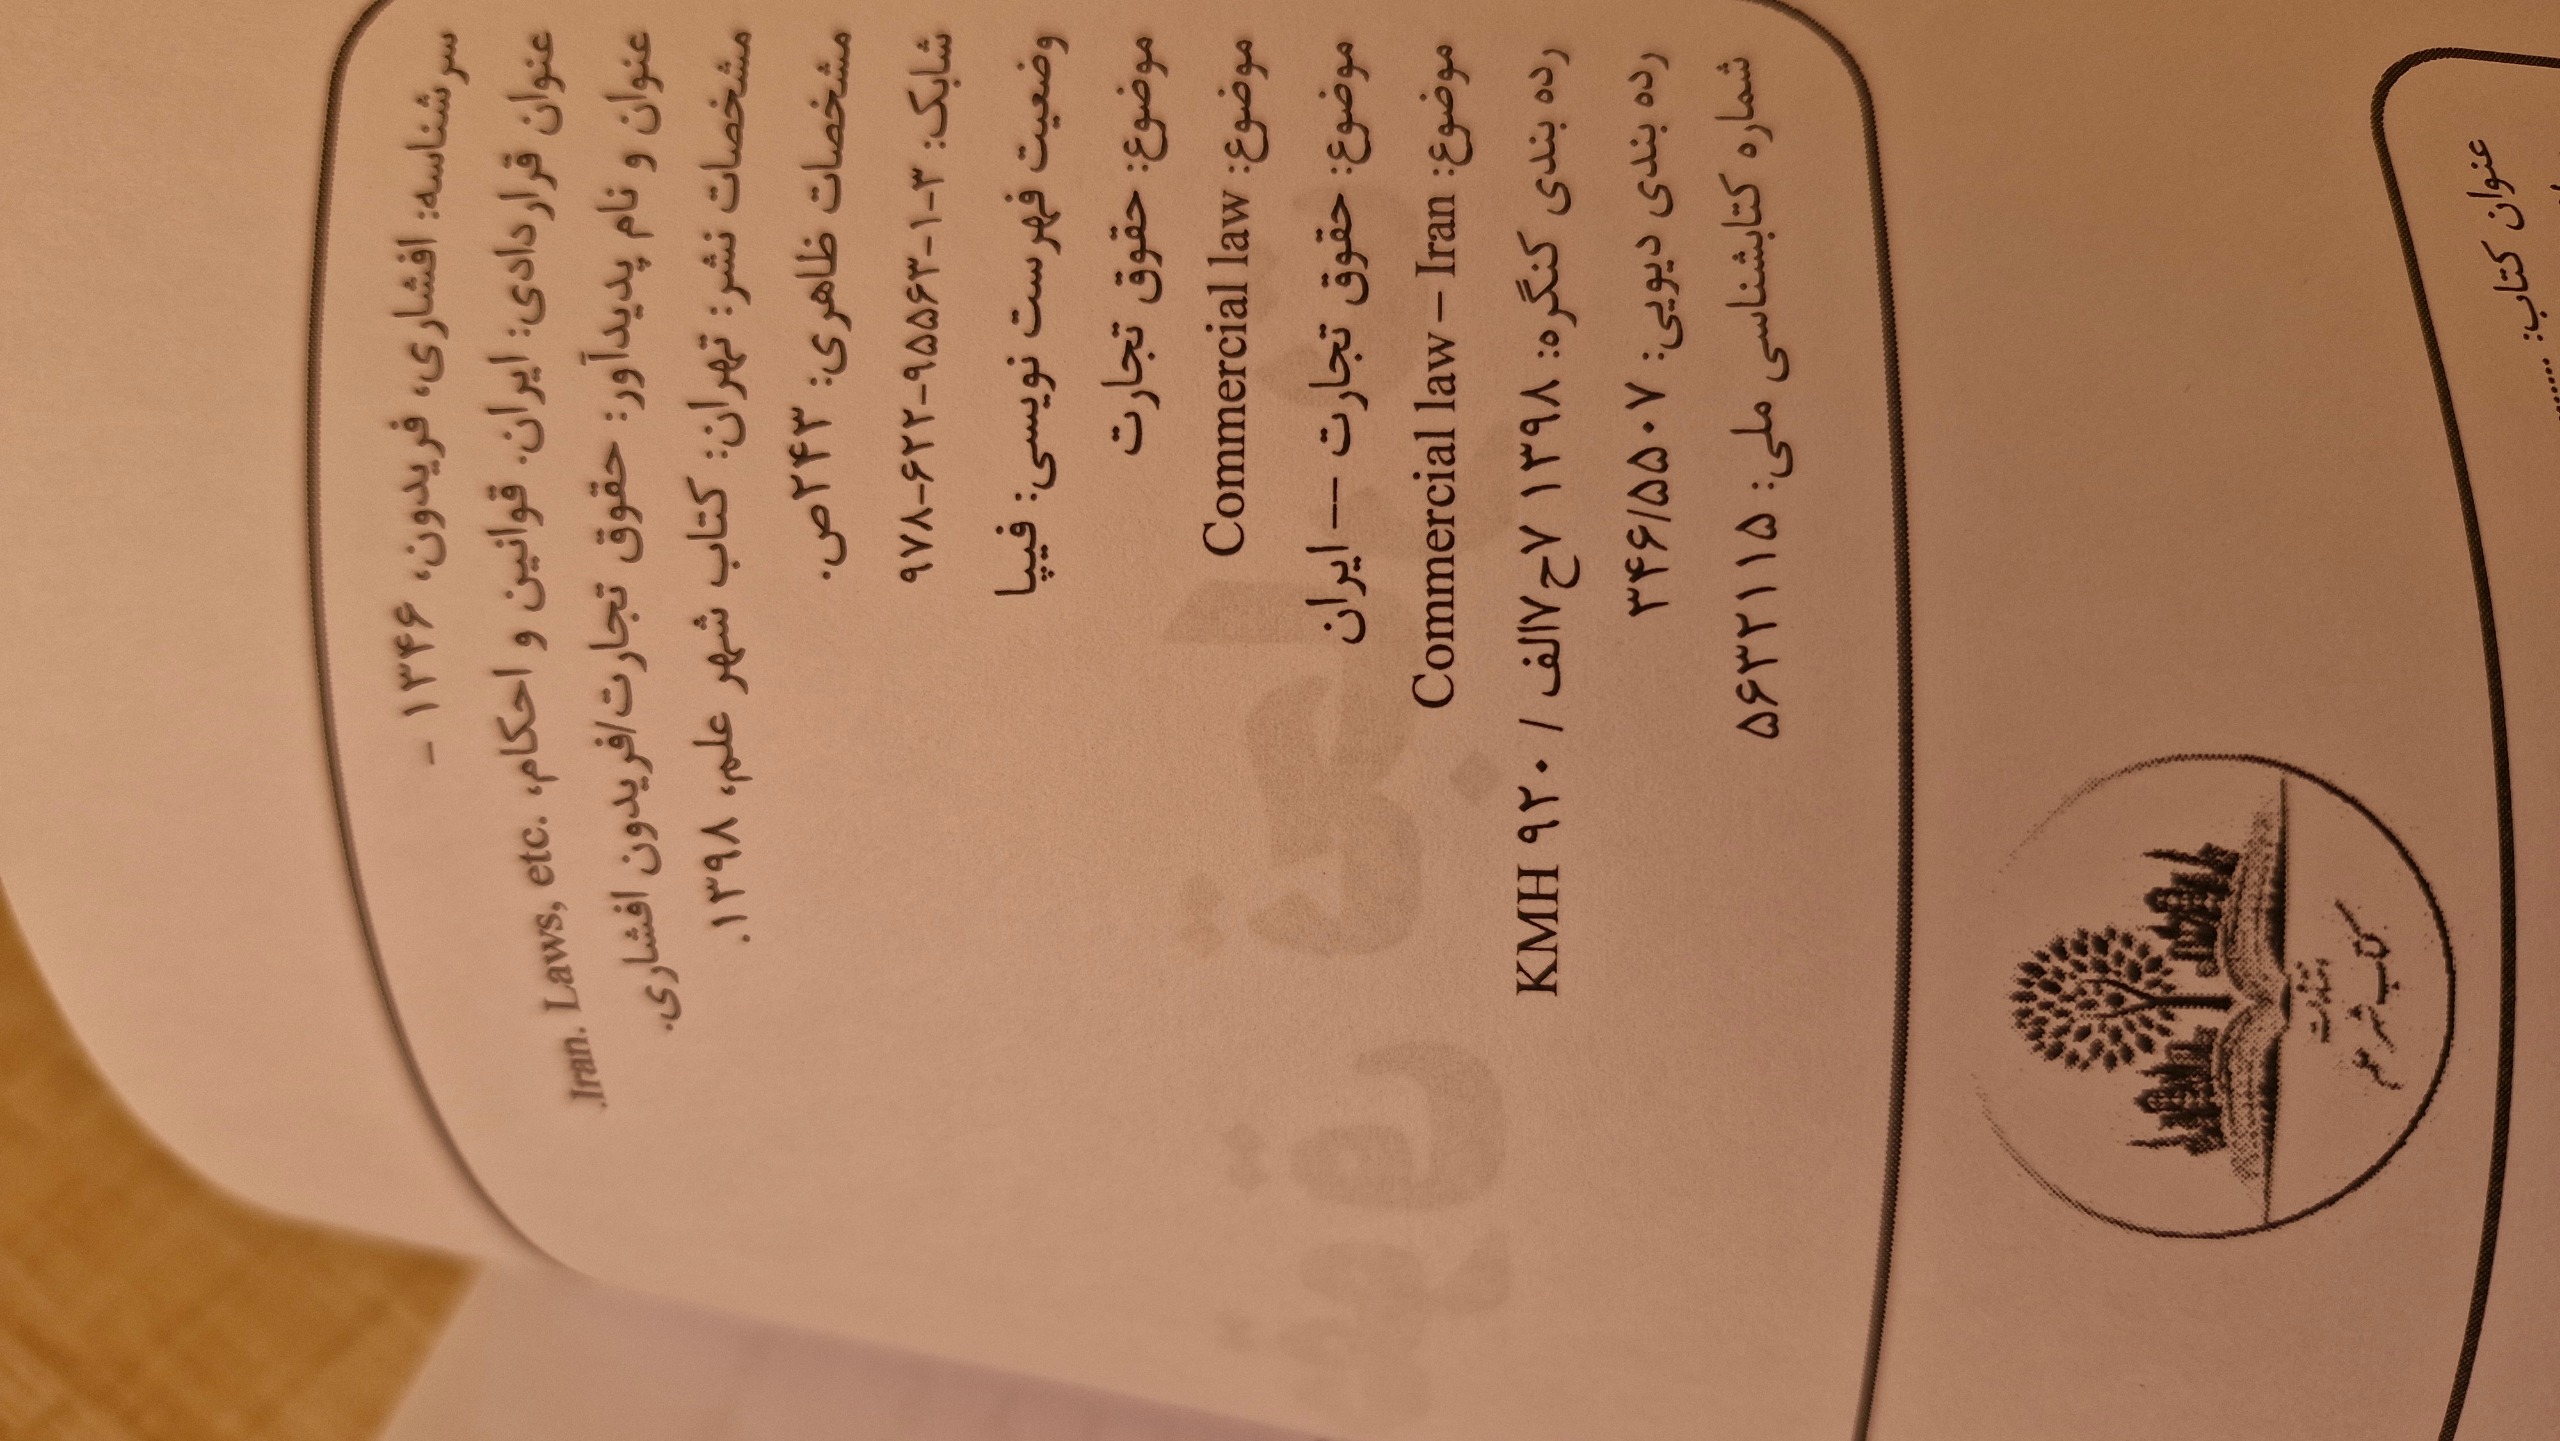 سرشناسه: افشاری، فریدون، ۱۳۴۶ -
عنوان قراردادی: ایران. قوانین و احکام، .Iran. Laws, etc.
عنوان و نام پدیدآور: حقوق تجارت/فریدون افشاری.
مشخصات نشر: تهران: کتاب شهر علم، ۱۳۹۸.
مشخصات ظاهری: ۲۴۳ص.
شابک: ۳-۱-۹۵۵۶۳-۶۲۲-۹۷۸
وضعیت فهرست نویسی: فیپا
موضوع: حقوق تجارت
موضوع: Commercial law
موضوع: حقوق تجارت -- ایران
موضوع: Commercial law – Iran
رده بندی کنگره: ۱۳۹۸ ۷ح۷الف / ۹۲۰ KMH
رده بندی دیویی: ۳۴۶/۵۵۰۷
شماره کتابشناسی ملی: ۵۶۳۲۱۱۵
انتشارات
کتاب شهر علم
عنوان کتاب: ......